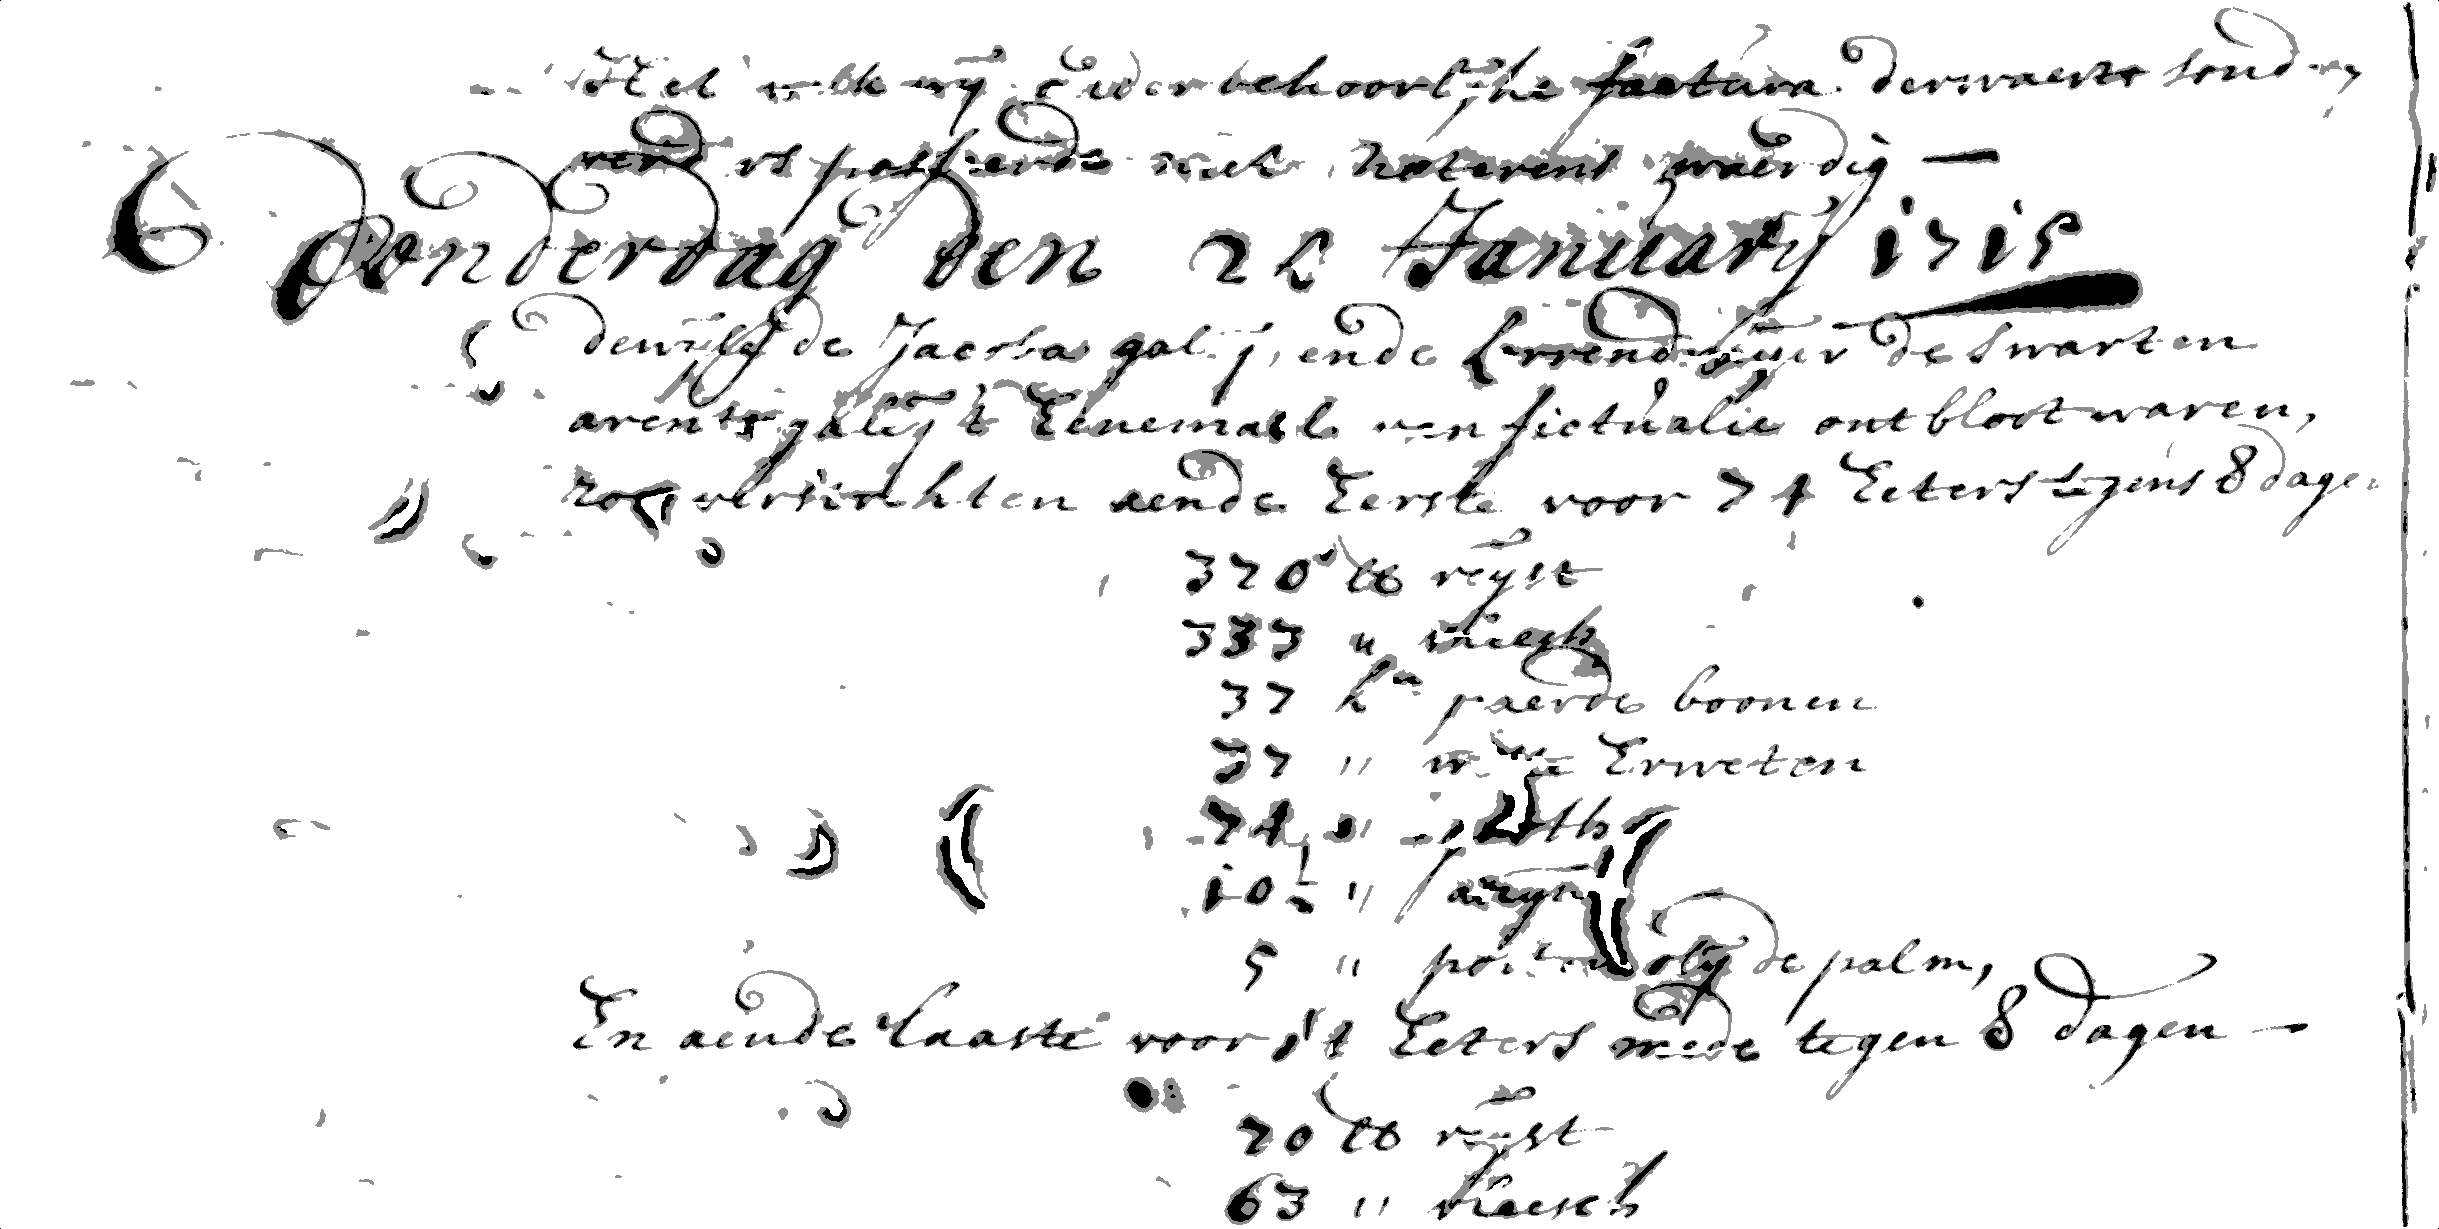 Het welk wij onder behoorlijke factura derwaerts sonden
verd rs passeerde niet noterens waerdig —
Donderdag den 24 Januarÿ 1715
dewijle de Jacoba galij, ende de swarten
arents galij t' Eenemael van fictualie ontbloot waren,
zoo versochten aende Eerste voor 74 Eeters tegens 8 dagen
370 lb reÿst
333 " vleesch
37 kn paerde boonen
37 " witte Erweten
74 "
10½ " azijn
5 " olij de palm,
En aende laaste voor 14 Eeters mede tegen 8 dagen —
70 lb reÿst
63 " vleesch